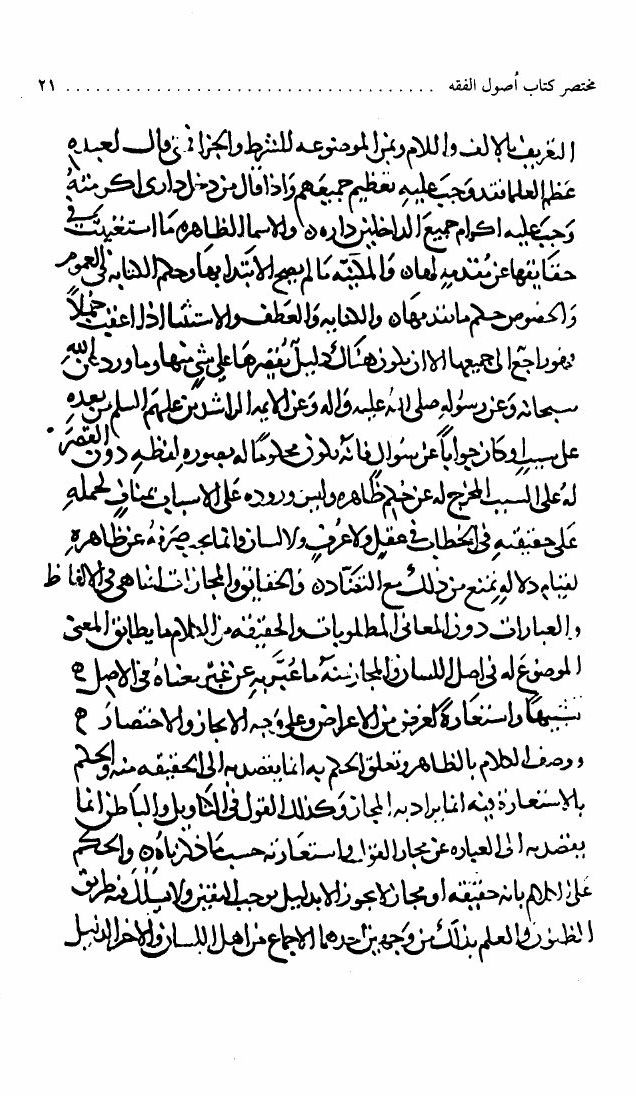 مختصر كتاب أصول الفقه ..................................... ٢١
التعريف بالالف واللام وبمن الموضوعه للشرط والجزا فمتى قال لعبده
عظم العلما فقد وجب عليه تعظيم جميعهم واذا قال من دخل دارى اكرمته
وجب عليه اكرام جميع الداخلين داره ٥ والاسما الظاهره ما استغنيت في
حقايقها عن مقدمه لها ٥ والمكنيه ما لم يصح الابتدا بها وحكم الكنايه فى العموم
والخصوص حكم ما تقدمها ٥ والكنايه والعطف والاستثنا اذا اعقبت جملاً
فهو راجع الى جميعها الا ان يكون هناك دليل يقصرها على شى منها وما ورد عن الله
سبحانه وعن رسوله صلى الله عليه واله وعن الايمه الراشدين عليهم السلم من بعده
على سبب او كان جواباً عن سوال فانه يكون محكوماً له بصوره لفظه دون القصر
له على السبب المخرج له عن حكم ظاهره وليس وروده على الاسباب بمناف لحمله
على حقيقته فى الخطاب في عقل ولا عرف ولا لسان وانما يجب صرفه عن ظاهره
لقيام دلاله تمنع من ذلك مع التضاد ٥ والحقايق والمجازات انما هى فى الالفاظ
والعبارات دون المعانى المطلوبات والحقيقه من الكلام ما يطابق المعنى
الموضوع له فى اصل اللسان والمجاز منه ما عبر به عن غير معناه فى الاصل
تشبيهاً واستعارة لغرض من الاغراض وعلى وجه الايجاز والاختصار
ووصف الكلام بالظاهر وتعلق الحكم به انما يقصد به الى الحقيقه منه والحكم
بالاستعارة فيه انما يراد به المجاز وكذلك القول فى التاويل والباطن انما
يقصد به الى العباره عن مجاز القول واستعارته حسب ما ذكرناه ٥ والحكم
على الكلام بانه حقيقه او مجاز لا يجوز الا بدليل يوجب اليقين ولا يسلك فيه طريق
الظنون والعلم بذلك من وجهين احدهما الاجماع من اهل اللسان والاخر الدليل